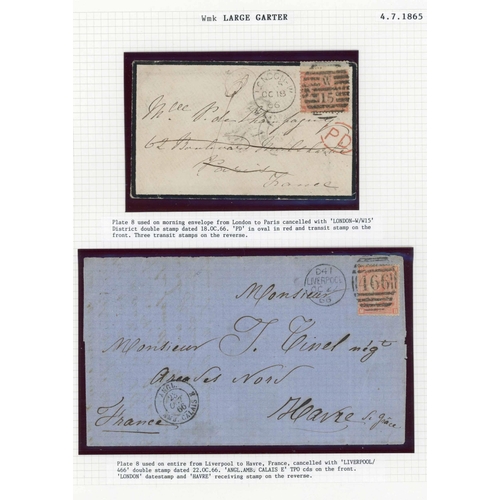 Wmk LARGE GARTER
4.7.1865
LONDON-W
OC 18
66
W
15
Mlle
62 Boulevard
Paris
France
PD
Plate 8 used on morning envelope from London to Paris cancelled with 'LONDON-W/W15'
District double stamp dated 18.OC.66. 'PD' in oval in red and transit stamp on the
front. Three transit stamps on the reverse.
D41
LIVERPOOL
66
466
Monsieur
Monsieur T. Tinel négt
Arcades Nord
Havre
France
ANGL.
66
Plate 8 used on entire from Liverpool to Havre, France, cancelled with 'LIVERPOOL/
466' double stamp dated 22.OC.66. 'ANGL.AMB; CALAIS E' TPO cds on the front.
'LONDON' datestamp and 'HAVRE' receiving stamp on the reverse.